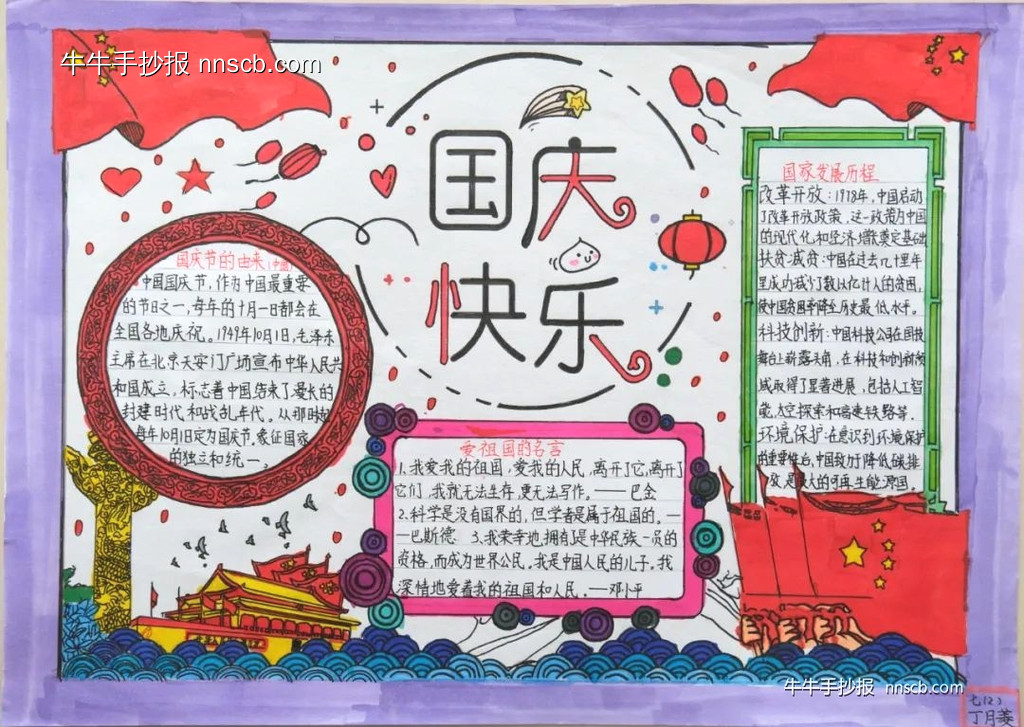 牛牛手抄报 nnscb.com
国庆
快乐
国庆节的由来
中国国庆节,作为中国最重要
的节日之一,每年的十月一日都会在
全国各地庆祝。1949年10月1日,毛泽东
主席在北京天安门广场宣布中华人民共
和国成立。标志着中国结束了漫长的
封建时代和战乱年代。从那时起
每年10月1日定为国庆节,象征国家
的独立和统一。
爱祖国的名言
1.我爱我的祖国,爱我的人民,离开了它,离开了
它们,我就无法生存,更无法写作。——巴金
2.科学是没有国界的,但学者是属于祖国的。—
—巴斯德 3.我荣幸地,拥有是中华民族一员的
资格,而成为世界公民。我是中国人民的儿子。我
深情地爱着我的祖国和人民。—邓小平
国家发展历程
改革开放:1978年,中国启动
了改革开放政策,这一政策为中国
的现代化和经济增长奠定基础
扶贫减贫:中国在过去几十里年
里成功减少数以亿计人的贫困,
使中国贫困率降至历史最低水平。
科技创新:中国科技公司在国际
舞台上崭露头角,在科技和创新领
域取得了显著进展,包括人工智
能,太空探索和高速铁路等.
环境保护:在意识到环境保护
的重要性后,中国致力于降低碳排
放,是最大的可再生能源国。
牛牛手抄报 nnscb.com
七(2)
丁月菱